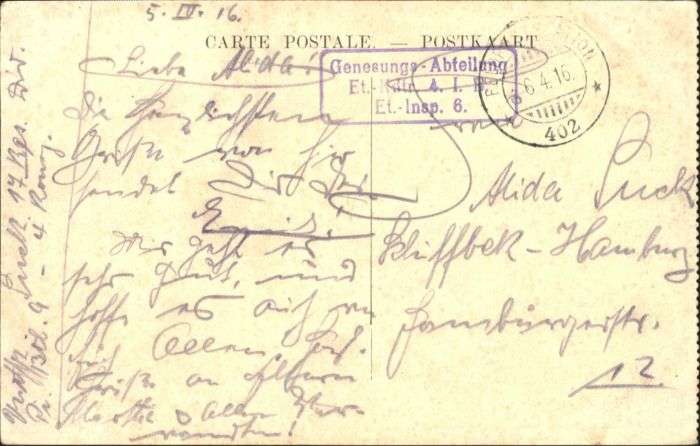 5. IV. 16.
CARTE POSTALE. — POSTKAART
Genesungs-Abteilung
Et.-Insp. 6.
6.4.16.
402
Liebe Alida!
die herzlichsten
Grüße von hir
sendet Dir Dein
Mir geht es
sehr gut, und
hoffe es auch von
Euch Allen
Grüße an Eltern
Martha & allen Ver-
wandten!
Alida Puck
Schiffbek - Hamburg
Hamburgerstr.
12
Puck 17 Rgs. Div.
4 Komp.